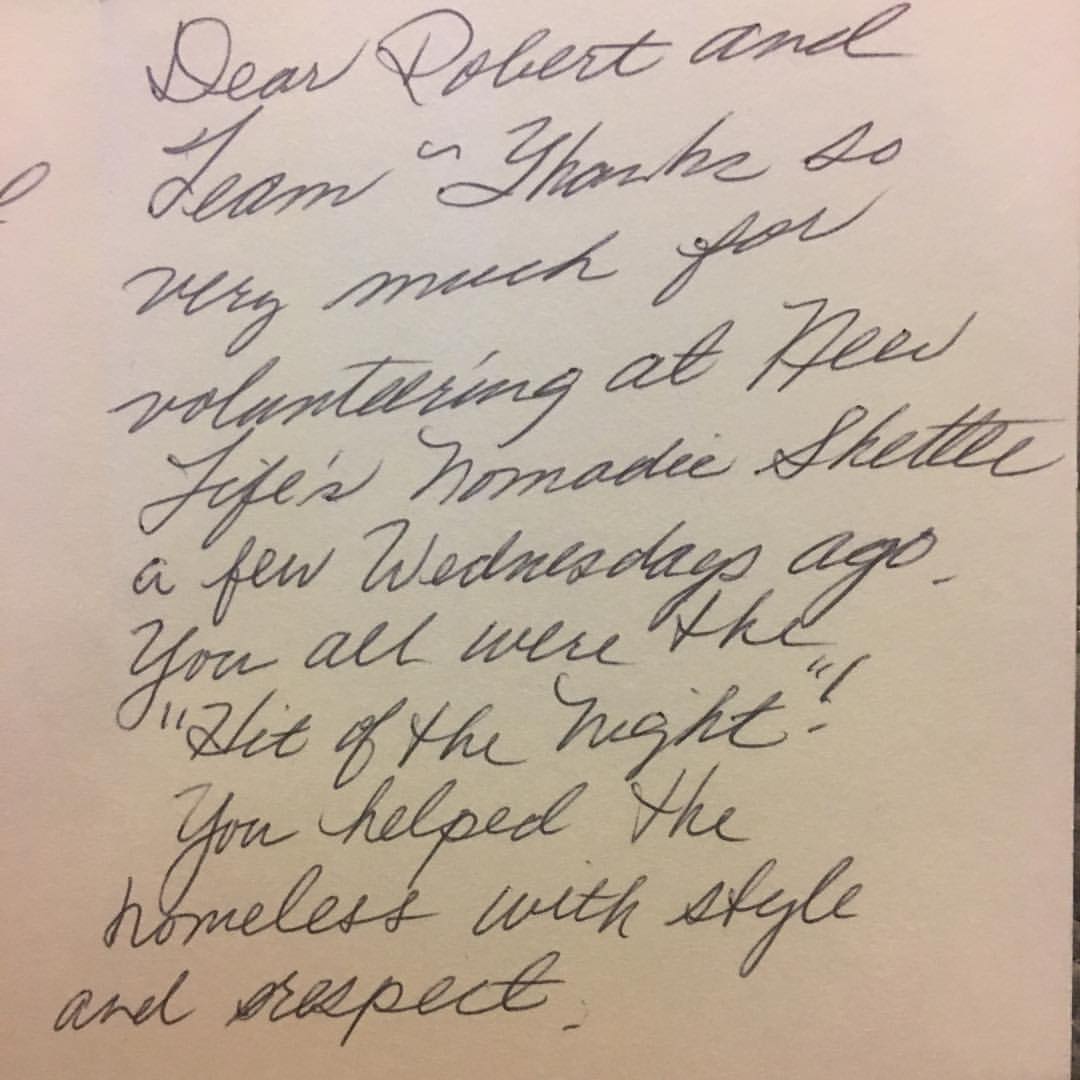 Dear Robert and
Team ~ Thanks so
very much for
volunteering at New
Life's Nomadic Sheltee
a few Wednesdays ago.
You all were the
"Hit of the Night"!
You helped the
homeless with style
and respect.